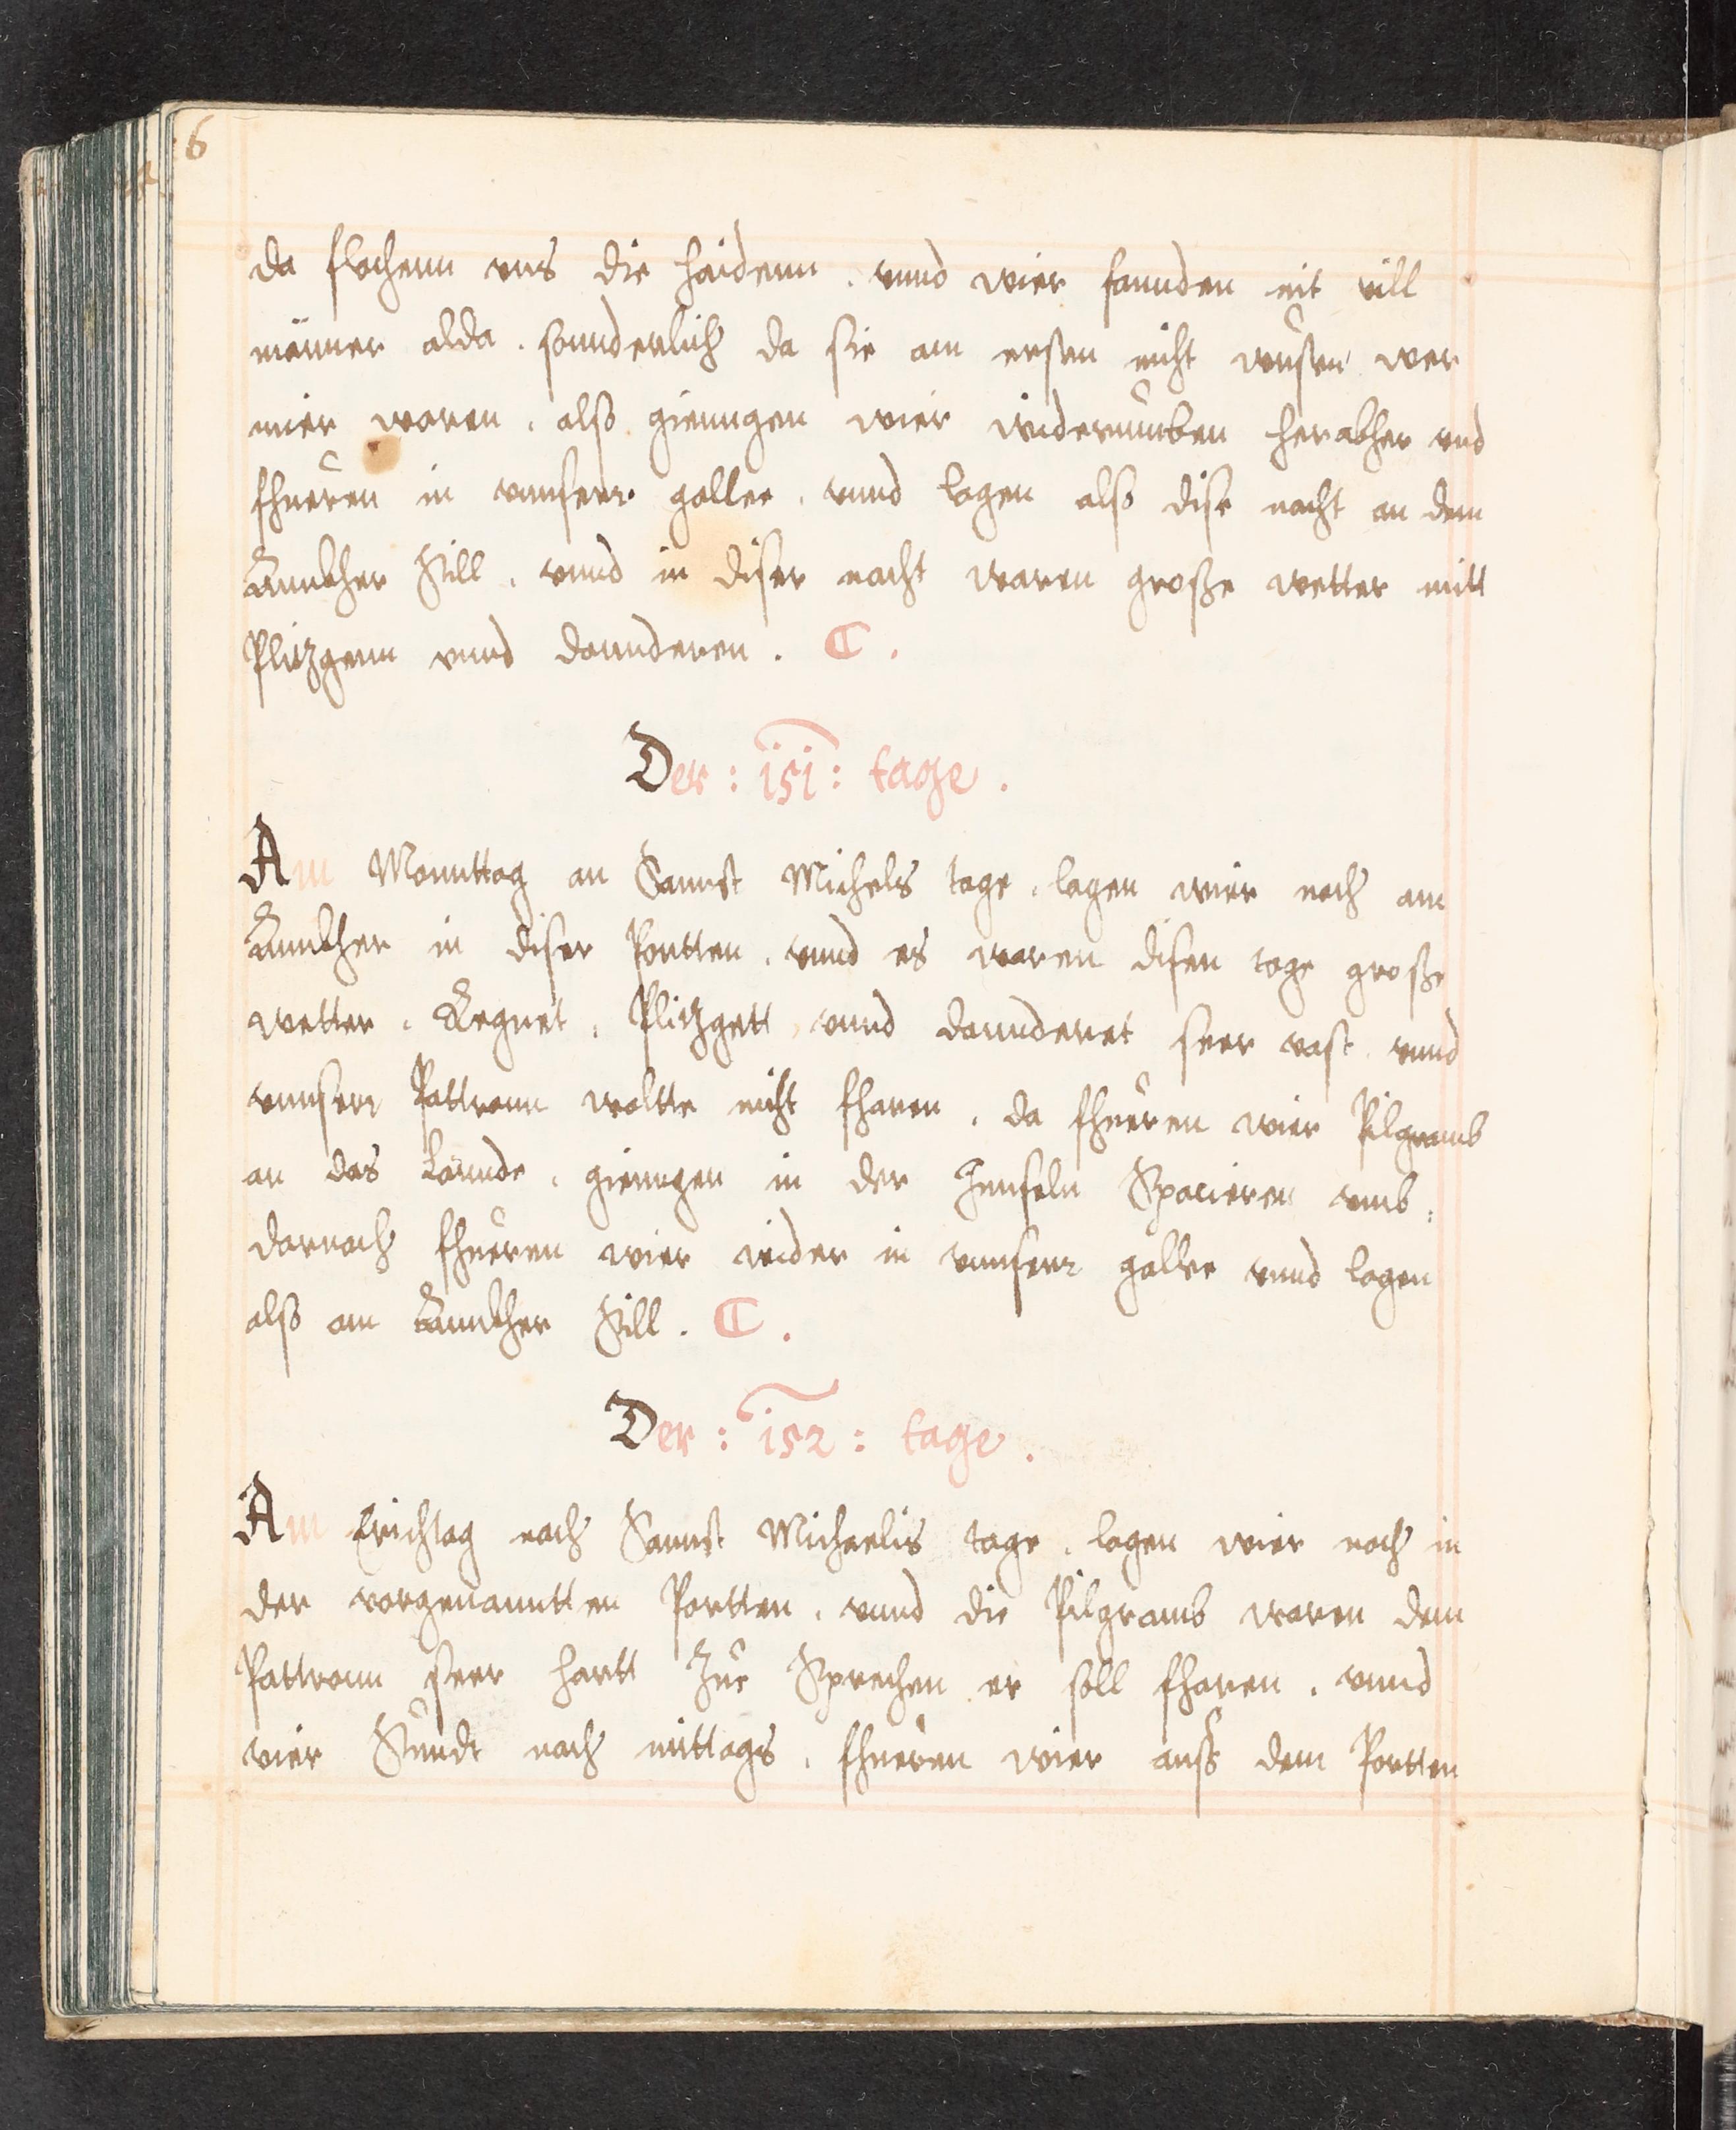 6
da flochenn vns die haidenn . vnnd wier fannden nit vill
männer alda . sonnderlich da sie am ersten nicht wusten wer
mier waren . alß gienngen wier widerumben herabher vnd
fhueren in vnnserr gallee . vnnd lagen alß dise nacht an dem
Annkher Still . vnnd in diser nacht waren große wetter mitt
Plitzgenn vnnd donnderen . C .
Der : 151 : tage .
Am Monnttag an Sannct Michels tage . lagen wier noch am
Annkher in diser Portten . vnnd es waren disen tage große
wetter . Regnet . Plitzgett vnnd donnderet seer vast . vnnd
vnnserr Pattronn woltte nicht fharen . da fhueren wier Pilgramb
an das Lannde . gienngen in der Innseln Spacieren vmb :
darnach fhueren wier wider in vnnserr gallee vnnd lagen
alß am Annkher Still . C .
Der : 152 : tage .
Am Erichtag nach Sannct Michaelis tage . lagen wier noch in
der vorgenanntten Portten . vnnd die Pilgramb waren dem
Pattronn seer hartt Zue Sprechen er soll fharen . vnnd
vier Stundt nach mittags . fhueren wier auß dem Portten